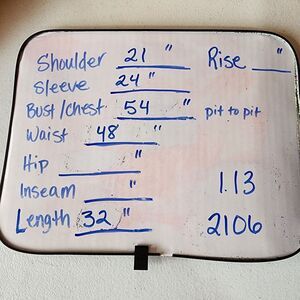 Shoulder 21 " Rise __"
Sleeve 24 "
Bust/Chest 54 " pit to pit
Waist 48 "
Hip ______ "
Inseam ____ " 1.13
Length 32 " 2106